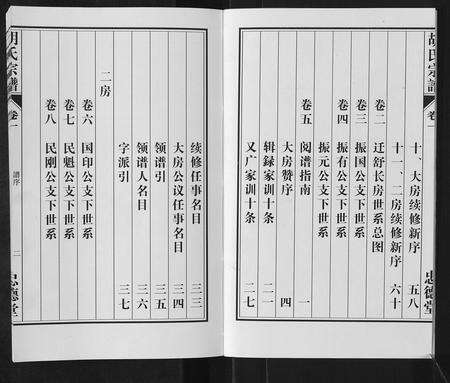 胡氏宗譜
卷一
忠德堂
十、大房续修新序 五八
十一、二房续修新序 六十
卷二 迁舒长房世系总图
卷三 振国公支下世系
卷四 振有公支下世系
振元公支下世系
卷五 阅谱指南 一
大房赞序 四
辑録家训十条 二一
又广家训十条 二七
续修任事名目 三三
大房公议任事名目 三四
领谱引 三五
领谱人名目 三六
字派引 三七
二房
卷六 国印公支下世系
卷七 民魁公支下世系
卷八 民刚公支下世系
胡氏宗譜
卷一
譜序
二
忠德堂